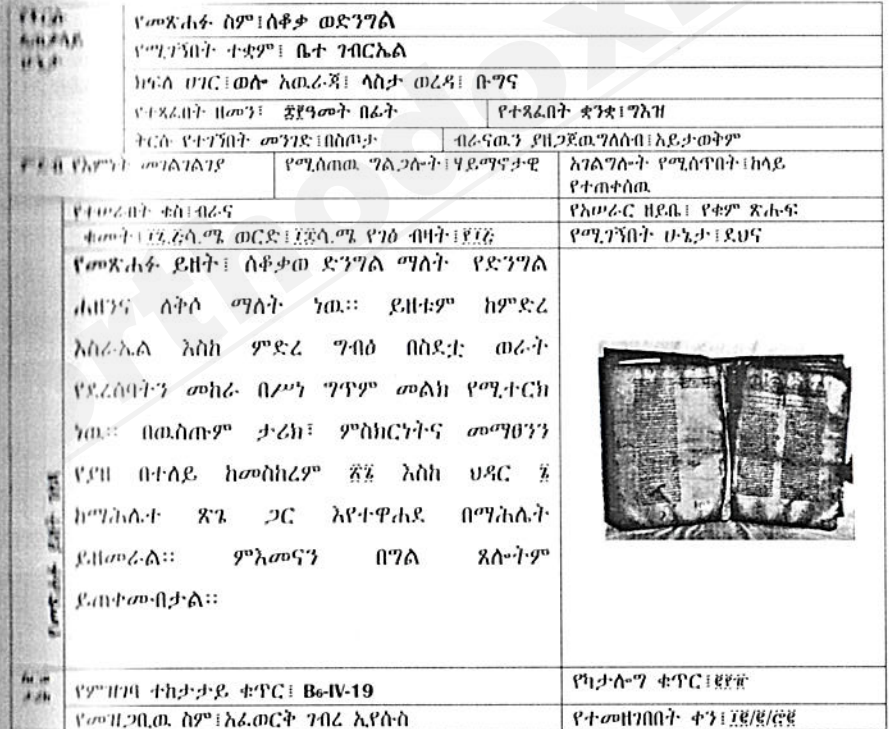 የመጽሐፉ ስም፤ሰቆቃ ወድንግል
የሚገኝበት ተቋም፤ ቤተ ገብርኤል
ክፍለ ሀገር፤ወሎ አዉራጃ፤ ላስታ ወረዳ፤ ቡግና
የተጻፈበት ዘመን፤ በፊት የተጻፈበት ቋንቋ፤ግእዝ
ትርሱ የተገኘበት መንገድ፤በስጦታ ብራናዉን ያዘጋጀዉግለሰብ፤አይታወቅም
የእምነት መገልገልገያ የሚሰጠዉ ግልጋሎት፤ሃይማኖታዊ አገልግሎት የሚሰጥበት፤ከላይ
የተጠቀሰዉ
የተሠራበት ቁስ፤ብራና የአሠራር ዘይቤ፤ የቁም ጽሑፍ
ቁመት፤ ሳ.ሜ ወርድ፤ ሳ.ሜ የገፅ ብዛት፤ የሚገኝበት ሁኔታ፤ደህና
የመጽሐፉ ይዘት፤ ሰቆቃወ ድንግል ማለት የድንግል
ሐዘንና ለቅሶ ማለት ነዉ። ይዘቱም ከምድረ
እስራኤል እስከ ምድረ ግብፅ በስደቷ ወራት
የደረሰባትን መከራ በሥነ ግጥም መልክ የሚተርክ
ነዉ። በዉስጡም ታሪክ፣ ምስክርነትና መማፀንን
የያዘ በተለይ ከመስከረም ፳፮ እስከ ህዳር ፮
ከማሕሌተ ጽጌ ጋር እየተዋሐደ በማሕሌት
ይዘመራል። ምእመናን በግል ጸሎትም
ይጠቀሙበታል።
የምዝገባ ተከታታይ ቁጥር፤ B6-IV-19 የካታሎግ ቁጥር፤
የመዝጋቢዉ ስም፤አፈወርቅ ገብረ ኢየሱስ የተመዘገበበት ቀን፤